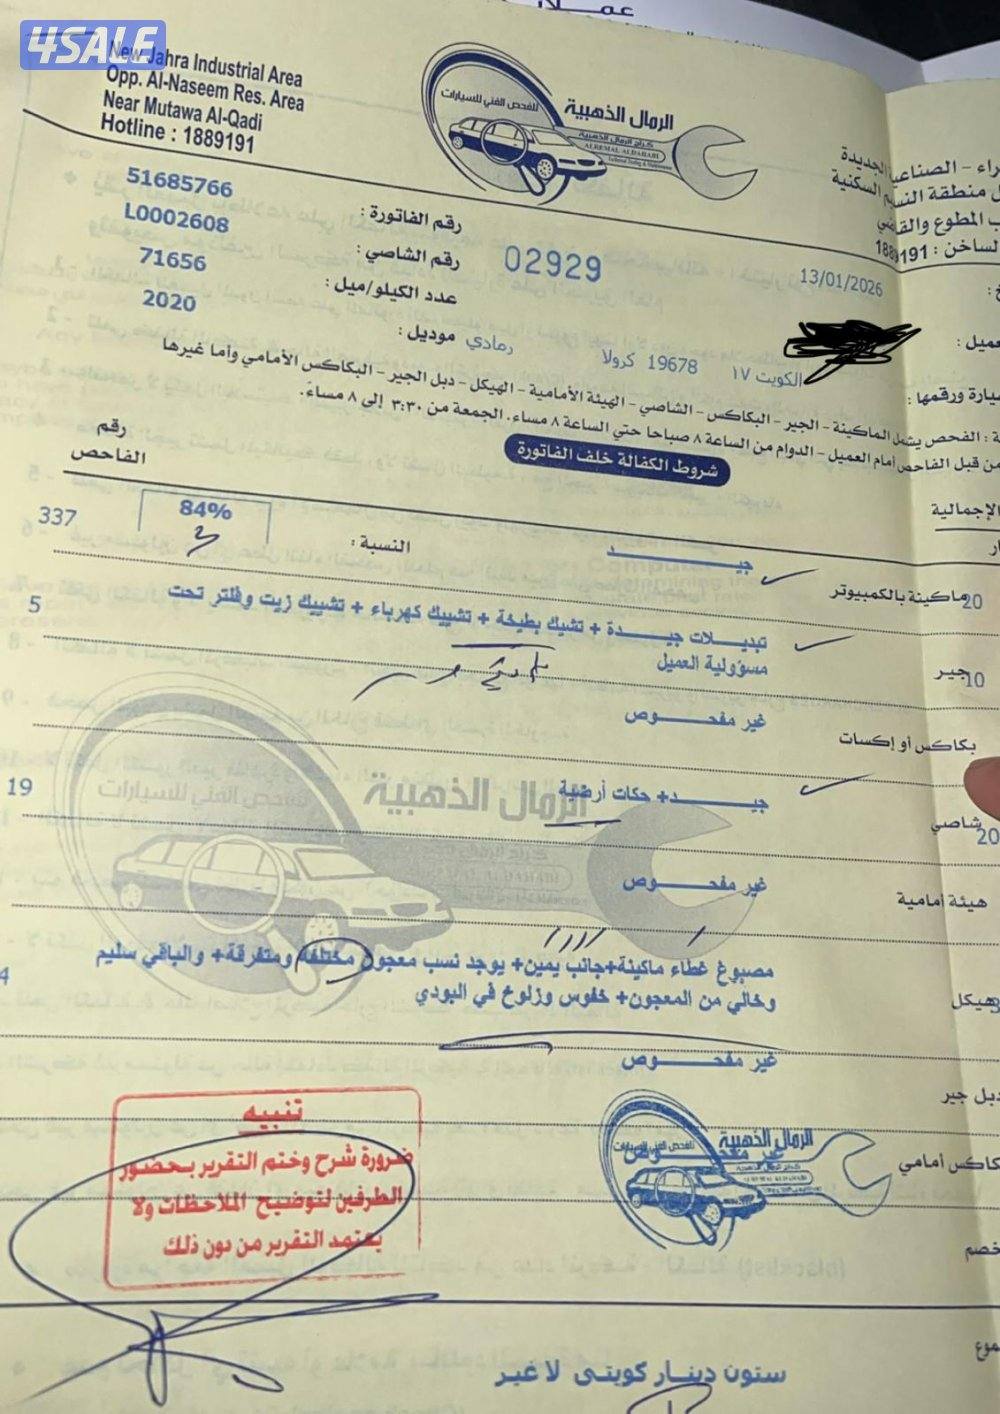 4SALE
New Jahra Industrial Area
Opp. Al-Naseem Res. Area
Near Mutawa Al-Qadi
Hotline : 1889191
الرمال الذهبية
للفحص الفني للسيارات
كراج الرمال الذهبية
ALREMAL ALDAHABI
الصناعية الجديدة
منطقة النسيم السكنية
المطوع والقاضي
الساخن : 1889191
رقم الفاتورة : 51685766
رقم الشاصي : L0002608
02929
13/01/2026
عدد الكيلو/ميل : 71656
موديل : 2020
الكويت ١٧ 19678 كرولا رمادي
: الفحص يشمل الماكينة - الجير - البكاكس - الشاصي - الهيئة الأمامية - الهيكل - دبل الجير - البكاكس الأمامي وأما غيرها
من قبل الفاحص أمام العميل - الدوام من الساعة ٨ صباحا حتي الساعة ٨ مساء. الجمعة من ٣:٣٠ إلى ٨ مساءً.
شروط الكفالة خلف الفاتورة
رقم
الفاحص
الإجمالية
337
84%
النسبة :
جيد
ماكينة بالكمبيوتر
20
5
تبديلات جيدة + تشيك بطيخة + تشييك كهرباء + تشييك زيت وفلتر تحت
مسؤولية العميل
جير
10
غير مفحوص
بكاكس أو إكسات
19
جيد + حكات أرضية
شاصي
20
غير مفحوص
هيئة أمامية
4
مصبوغ غطاء ماكينة+جانب يمين+ يوجد نسب معجون مختلفة ومتفرقة+ والباقي سليم
وخالي من المعجون+ خفوس وزلوخ في البودي
هيكل
غير مفحوص
دبل جير
تنبيه
ضرورة شرح وختم التقرير بحضور
الطرفين لتوضيح الملاحظات ولا
يعتمد التقرير من دون ذلك
الرمال الذهبية
للفحص الفني للسيارات
غير مفحوص
بكاكس أمامي
خصم
ستون دينار كويتى لا غير